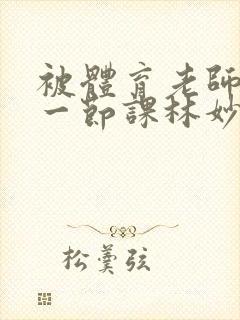 被體育老師
一節課林妙
松羹弦